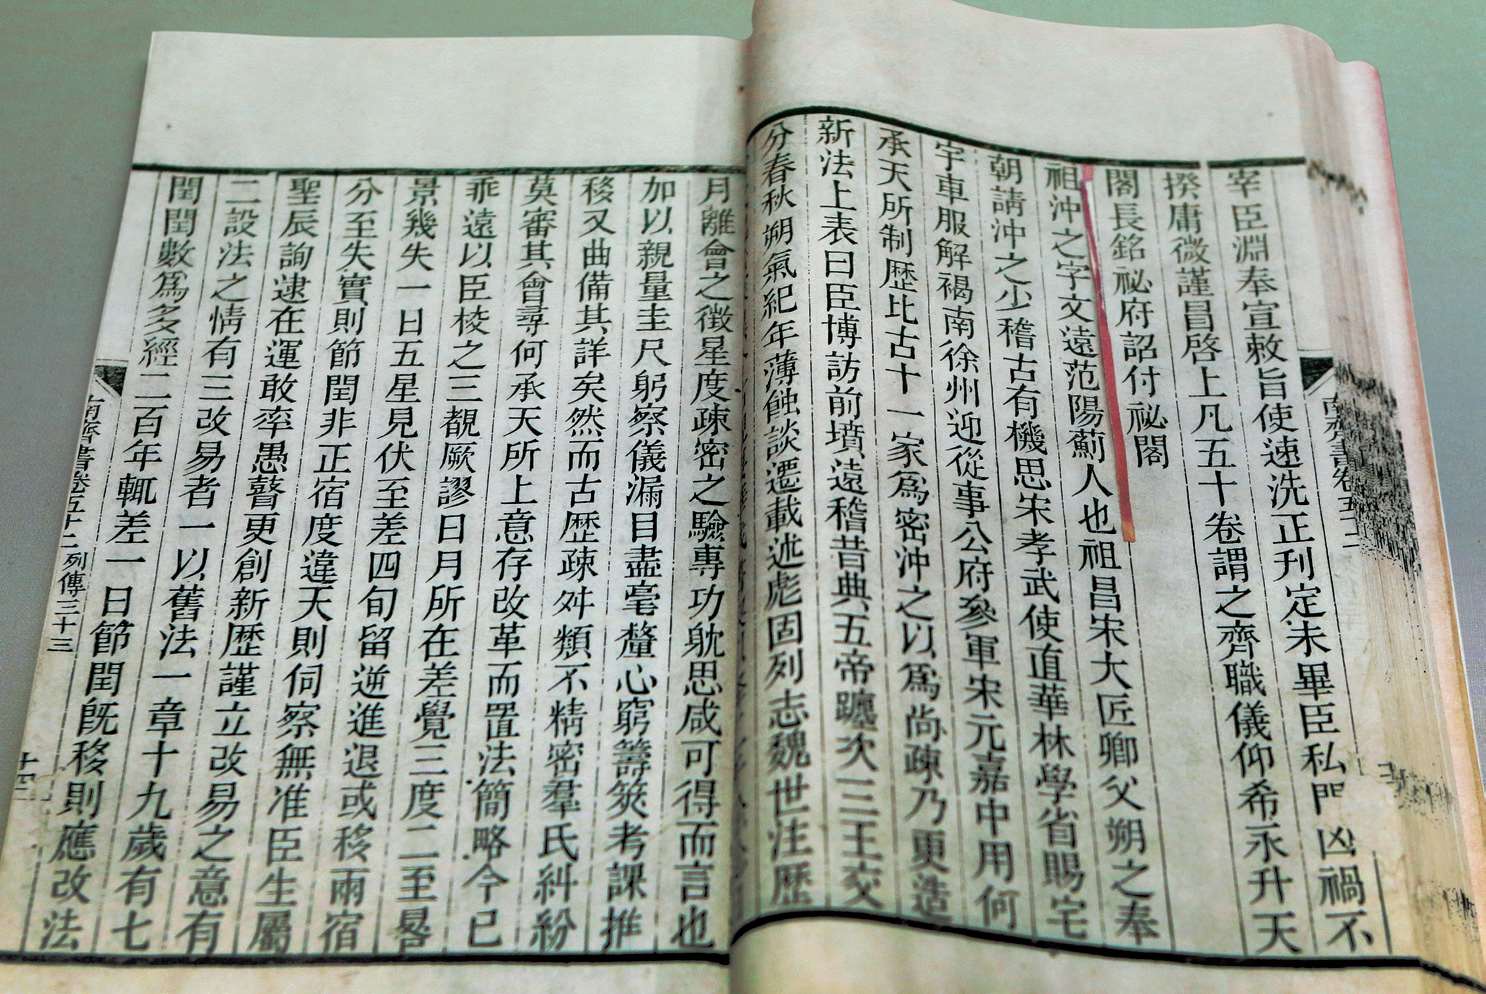 宰臣淵奉宣敕旨使速洗正刊定未畢臣私門凶禍不
揆庸微謹冒啓上凡五十卷謂之齊職儀仰希永升天
閣長銘祕府詔付祕閣
祖沖之字文遠范陽薊人也祖昌宋大匠卿父朔之奉
朝請沖之少稽古有機思宋孝武使直華林學省賜宅
宇車服解褐南徐州迎從事公府參軍宋元嘉中用何
承天所制歷比古十一家爲密沖之以爲尚疎乃更造
新法上表曰臣博訪前墳遠稽昔典五帝躔次三王交
分春秋朔氣紀年薄蝕談遷載述彪固列志魏世注歷
月離會之徵星度疎密之驗專功耽思咸可得而言也
加以親量圭尺躬察儀漏目盡毫釐心窮籌筴考課推
移又曲備其詳矣然而古歷疎舛類不精密羣氏糾紛
莫審其會尋何承天所上意存改革而置法簡略今已
乖遠以臣校之三覩厥謬日月所在差覺三度二至晷
景幾失一日五星見伏至差四旬留逆進退或移兩宿
分至失實則節閏非正宿度違天則伺察無准臣生屬
聖辰詢逮在運敢率愚瞽更創新歷謹立改易之意有
二設法之情有三改易者一以舊法一章十九歲有七
閏閏數爲多經二百年輒差一日節閏旣移則應改法
南齊書卷五十二 列傳三十三
十四